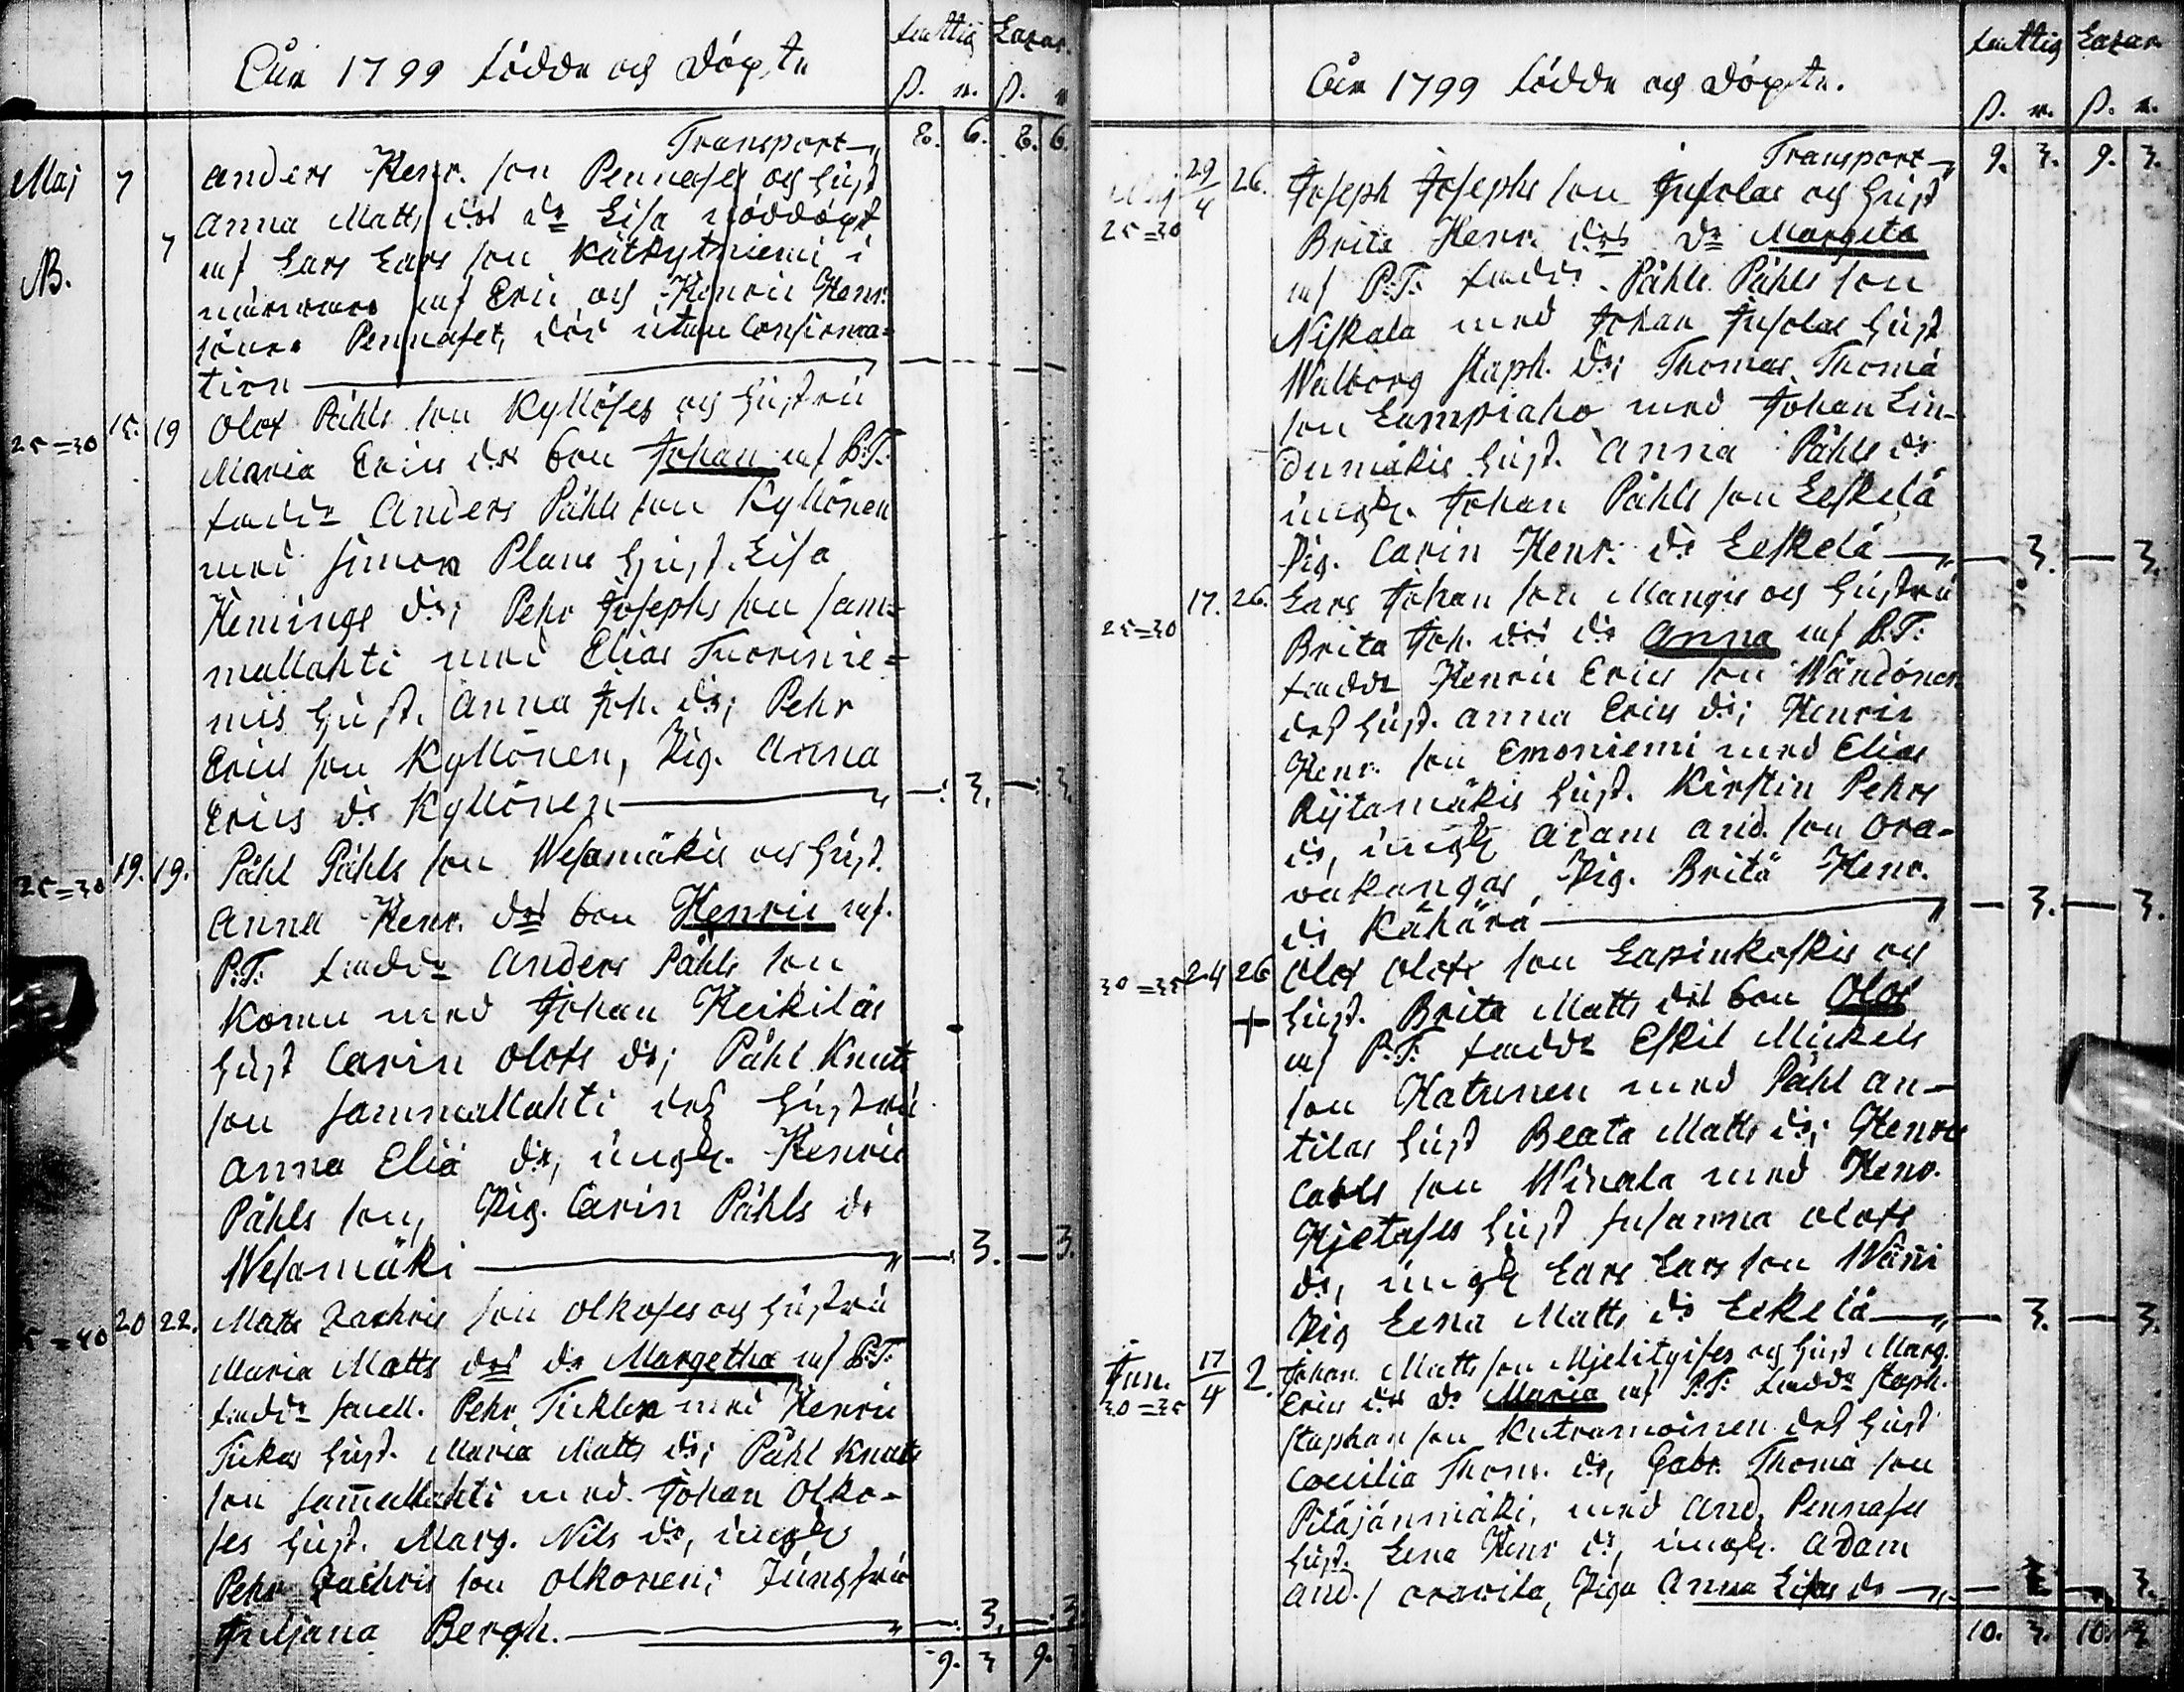 Åhr 1799 födde och döpte
fattig Lazar.
ß. r. ß. r
Transport 8. 6. 8. 6.
Maj 7 Anders Henr. son Pennases och hust
Anna Matts dr dr Lisa nöddöpt
7 af Lars Lars son Kätkytniemi i
NB. närvaro af Eric och Henric Henr.
söner Pennaset, död utan confirma=
tion
15. 19 Olof Påhls son Kyllöses och hustru
25=30 Maria Erics dr son Johan af P.T.
fadd. Anders Påhls son Kyllönen
med Simon Plane hust. Lisa
Hemings dr; Pehr Josephs son Sam=
mallahti med Elias Tuorinie=
mis hust. Anna Joh. dr; Pehr
Erics son Kyllönen, Pig. Anna
Erics dr Kyllönen — 3. — 3.
25=30 19. 19. Påhl Påhls son Wesamäkis och hust.
Anna Henr. dr son Henric af
P.T. fadd. Anders Påhls son
Komu med Johan Heikiläs
hust Carin Olofs dr; Påhl Knuts
son Sammallahti dess hustru
Anna Eliä dr, ungk. Henric
Påhls son, Pig. Carin Påhls dr
Wesamäki — 3. — 3.
20 22. Matts Zachris son Olkoses och hustru
5=40 Maria Matts dr dr Margetha af P.T.
fadd. Pehr med Henric
hust. Maria Matts dr; Påhl Knuts
son Samallahti med Johan Olko-
ses hust. Marg. Nils dr, ungk
Pehr Zachris son Olkonen; Jungfru
Juljana Bergh. — 3. — 3.
9. 3 9. 3
Åhr 1799 födde och döpte.
fattig Lazar
ß. r. ß. r.
Transport 9. 3. 9. 3.
Maj 29/4 26. Joseph Josephs son Jusolas och hust
25=30 Brita Henr. dr dr Margeta
af P.T. fadd. Påhl Påhls son
Niskala med Johan Jusolas hust
Walborg Staph. dr; Thomas Thomä
son Lampiaho med Johan Lin-
dumäkis hust. Anna Påhls dr
ungk. Johan Påhls son Leskelä
Pig. Carin Henr. dr Leskelä — 3. — 3.
17. 26. Lars Johan son Mangis och hustru
25=30 Brita Joh. dr dr Anna af P.T.
fadd. Henric Erics son Wändönen
dess hust. Anna Erics dr; Henric
Henr. son Emoniemi med Elias
Rytämäkis hust. Kirstin Pehrs
dr, ungk Adam And. son Ora-
wakangas, Pig. Brita Henr.
dr Kähärä — 3. — 3.
30=35 24 26 Olof Olofs son Lapinkoskis och
+ hust. Brita Matts dr son Olof
af P.T. fadd. Eskil Mickels
son Hatunen med Påhl An-
tilas hust Beata Matts dr; Henric
Carls son Winala med Henr.
Hjetases hust Susanna Olofs
dr, ungk Lars Lars son Wäni
Pig Lena Matts dr Lekelä — 3. — 3.
Jun. 17/4 2. Johan Matts son Mjelityises och hust Marg.
30=35 Erics dr dr Maria af P.T. fadd. Staph.
Staphan son Kutramoinen dess hust
Coecilia Thom. dr, Gabr. Thomä son
Pitäjänmäki, med And. Pennases
hust. Lena Henr dr, ungk. Adam
And. s oravita, Piga Anna Lisas dr — 3. — 3.
10. 3. 10. 3